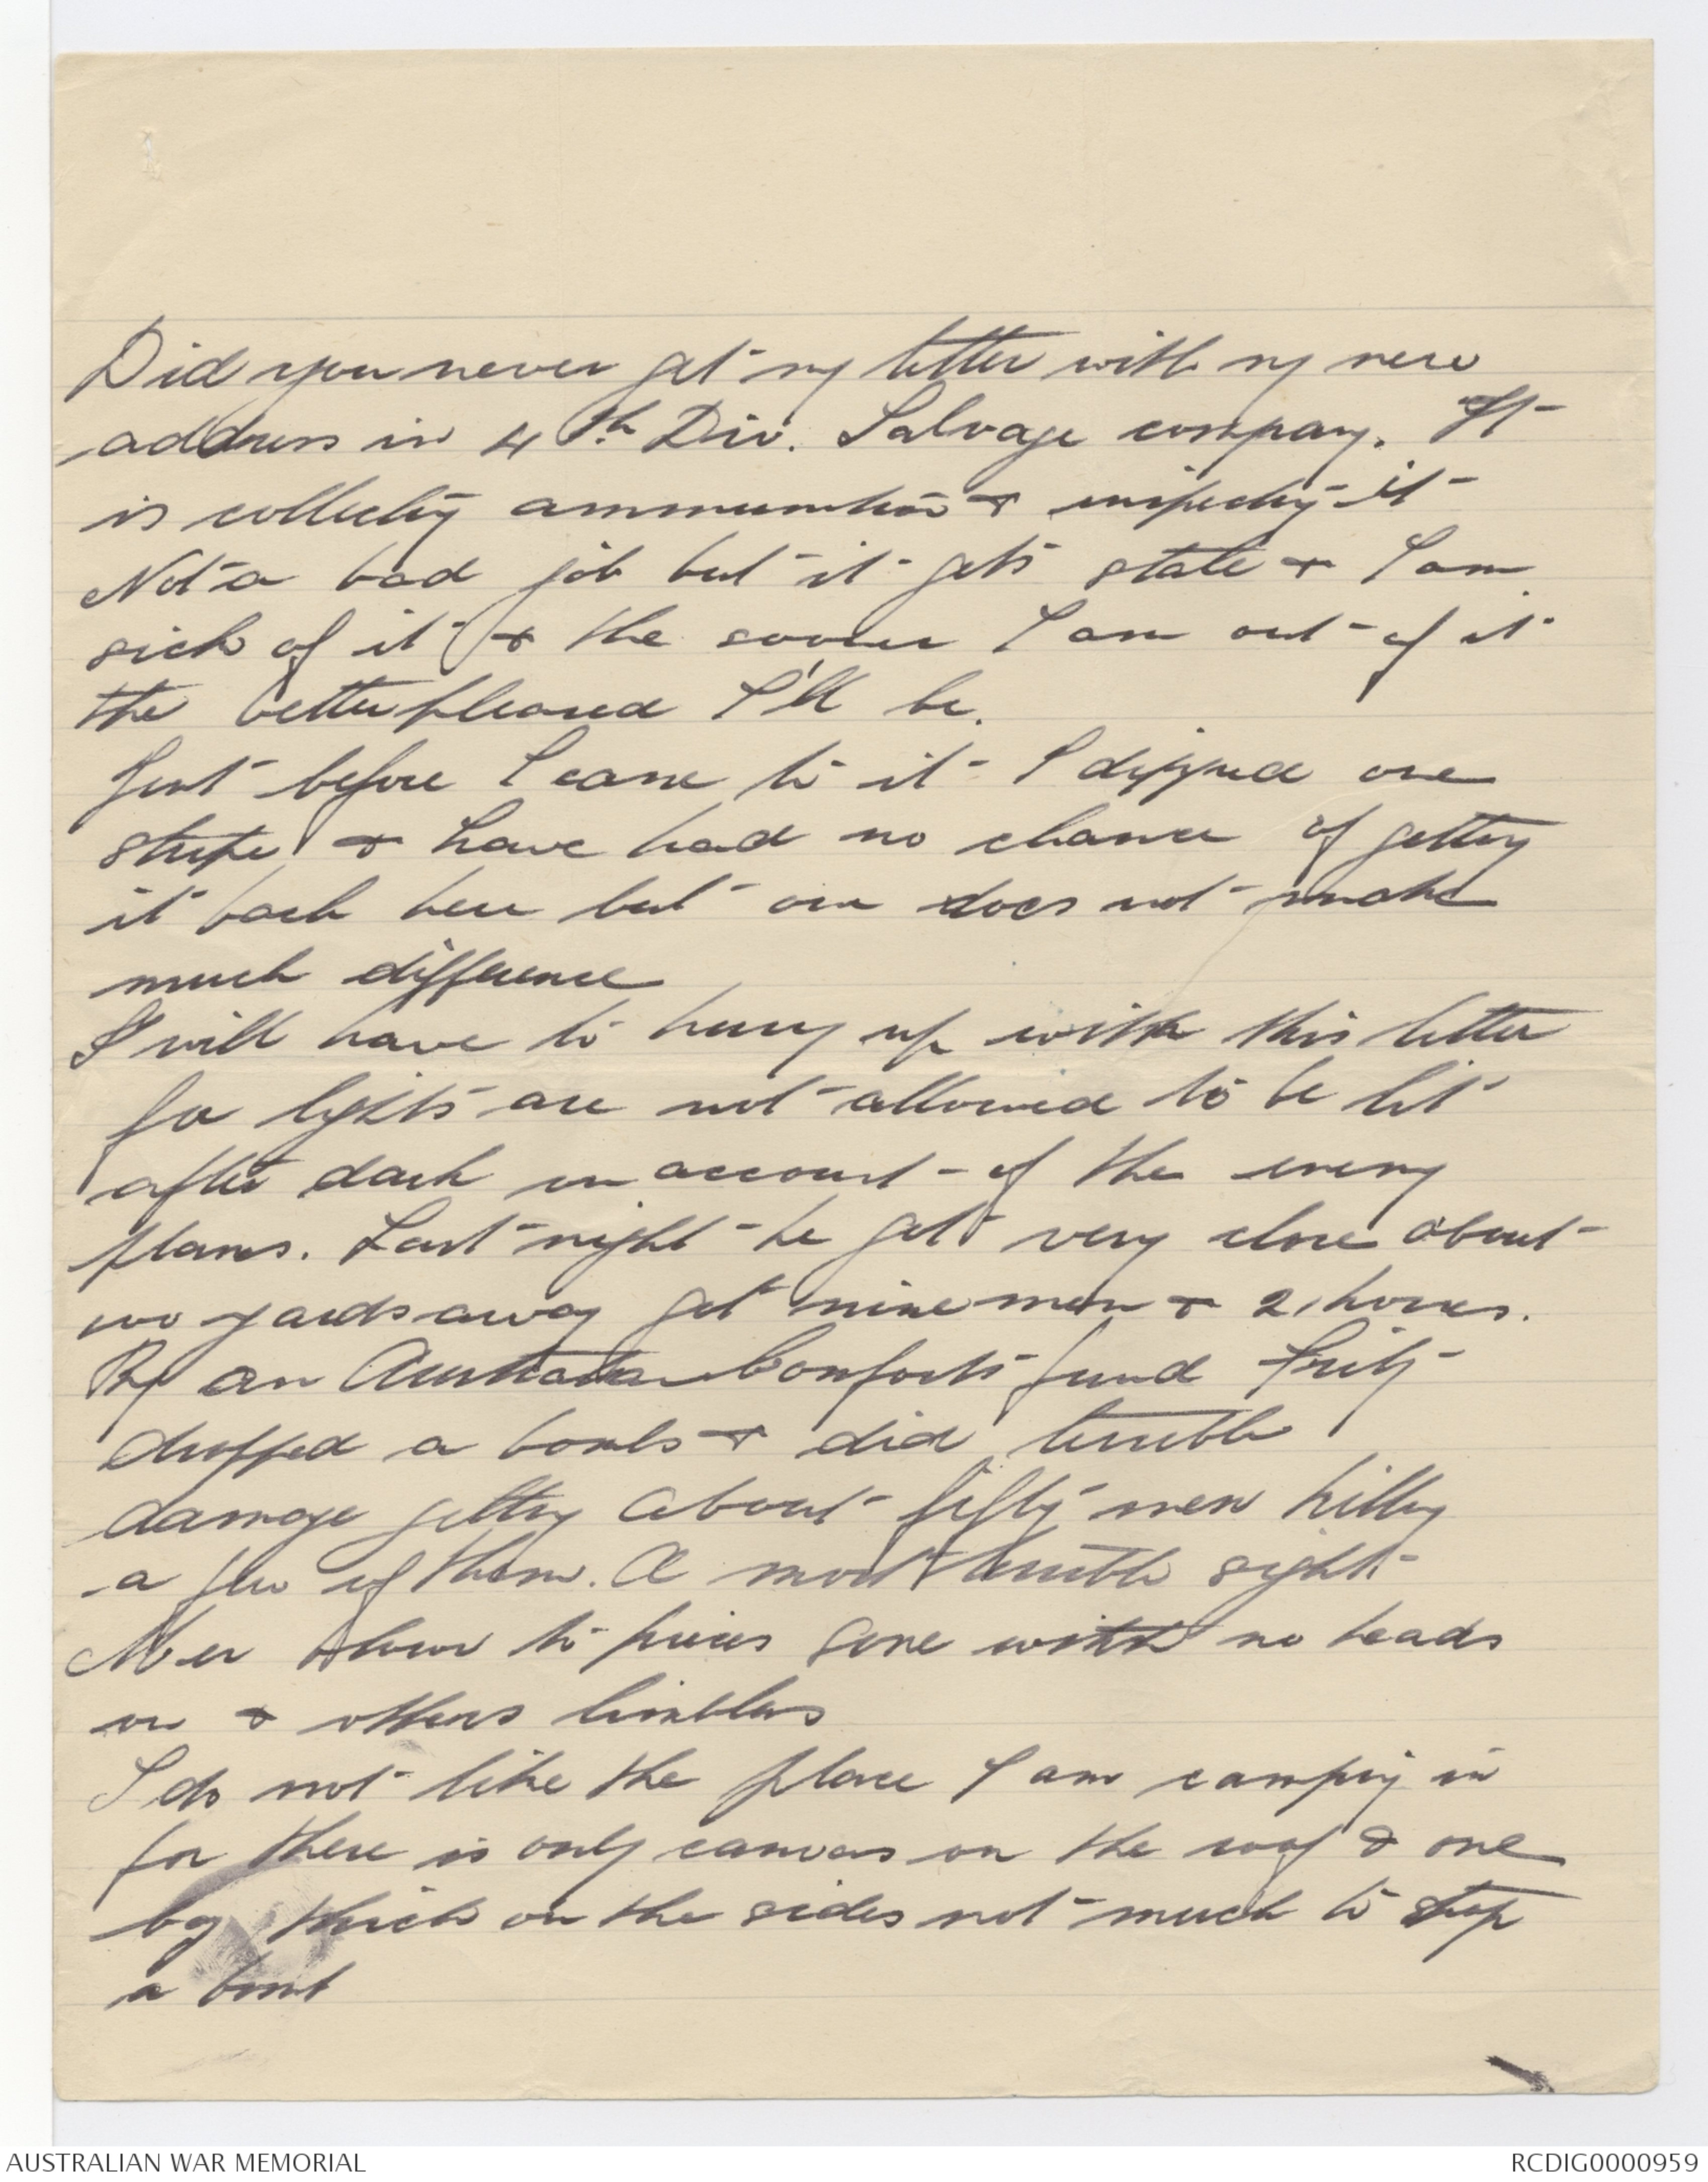 Did you never get my letter with my new
address in 4th Div. Salvage company. It
is collecting ammunition & inspecting it
Not a bad job but it gets stale & I am
sick of it & the sooner I am out of it
the better pleased I'll be.
Just before I came to it I dipped one
stripe & have had no chance of getting
it back here but one does not make
much difference
I will have to hurry up with this letter
for lights are not allowed to be lit
after dark on account of the enemy
planes. Last night he got very close about
100 yards away got nine men & 2 horses.
By an Australian Comforts fund Fritz
dropped a bomb & did terrible
damage getting about fifty men killing
a few of them. A most terrible sight
Men blown to pieces some with no heads
on & others limbless
I do not like the place I am camping in
for there is only canvas on the roof & one
bag thick on the sides not much to stop
a bomb
AUSTRALIAN WAR MEMORIAL
RCDIG0000959